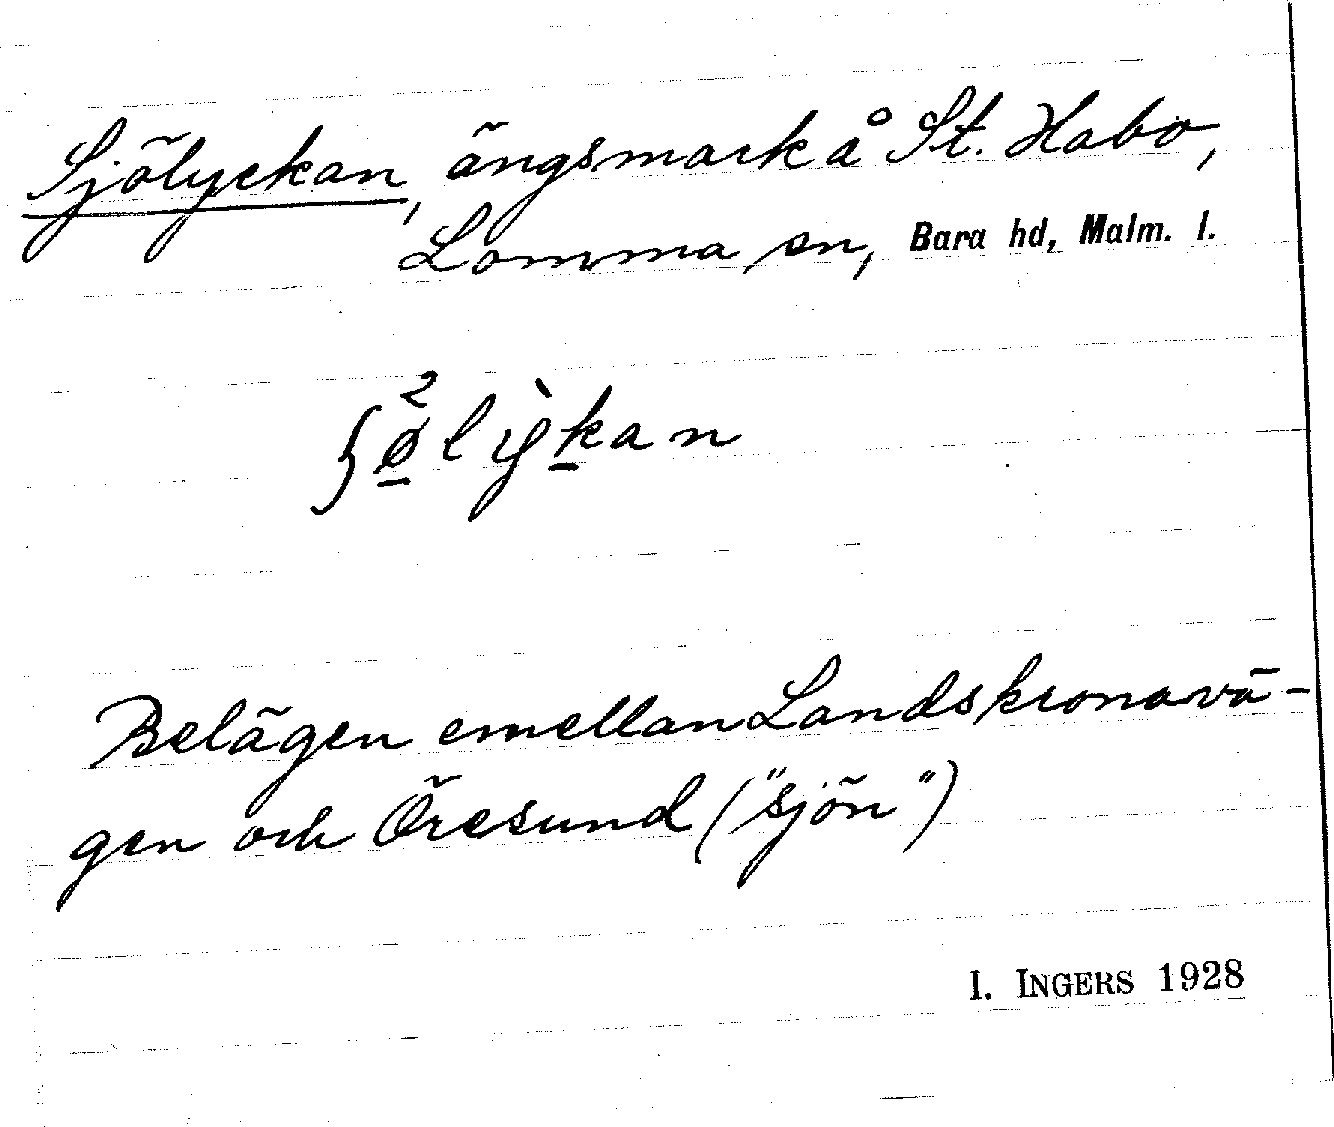 Sjölyckan, ängsmark å St. Habo,
Lomma sn, Bara hd, Malm. l.
ʃø̠²lỳk̠an
Belägen emellan Landskronavä-
gen och Öresund ("sjön")
I. INGERS 1928